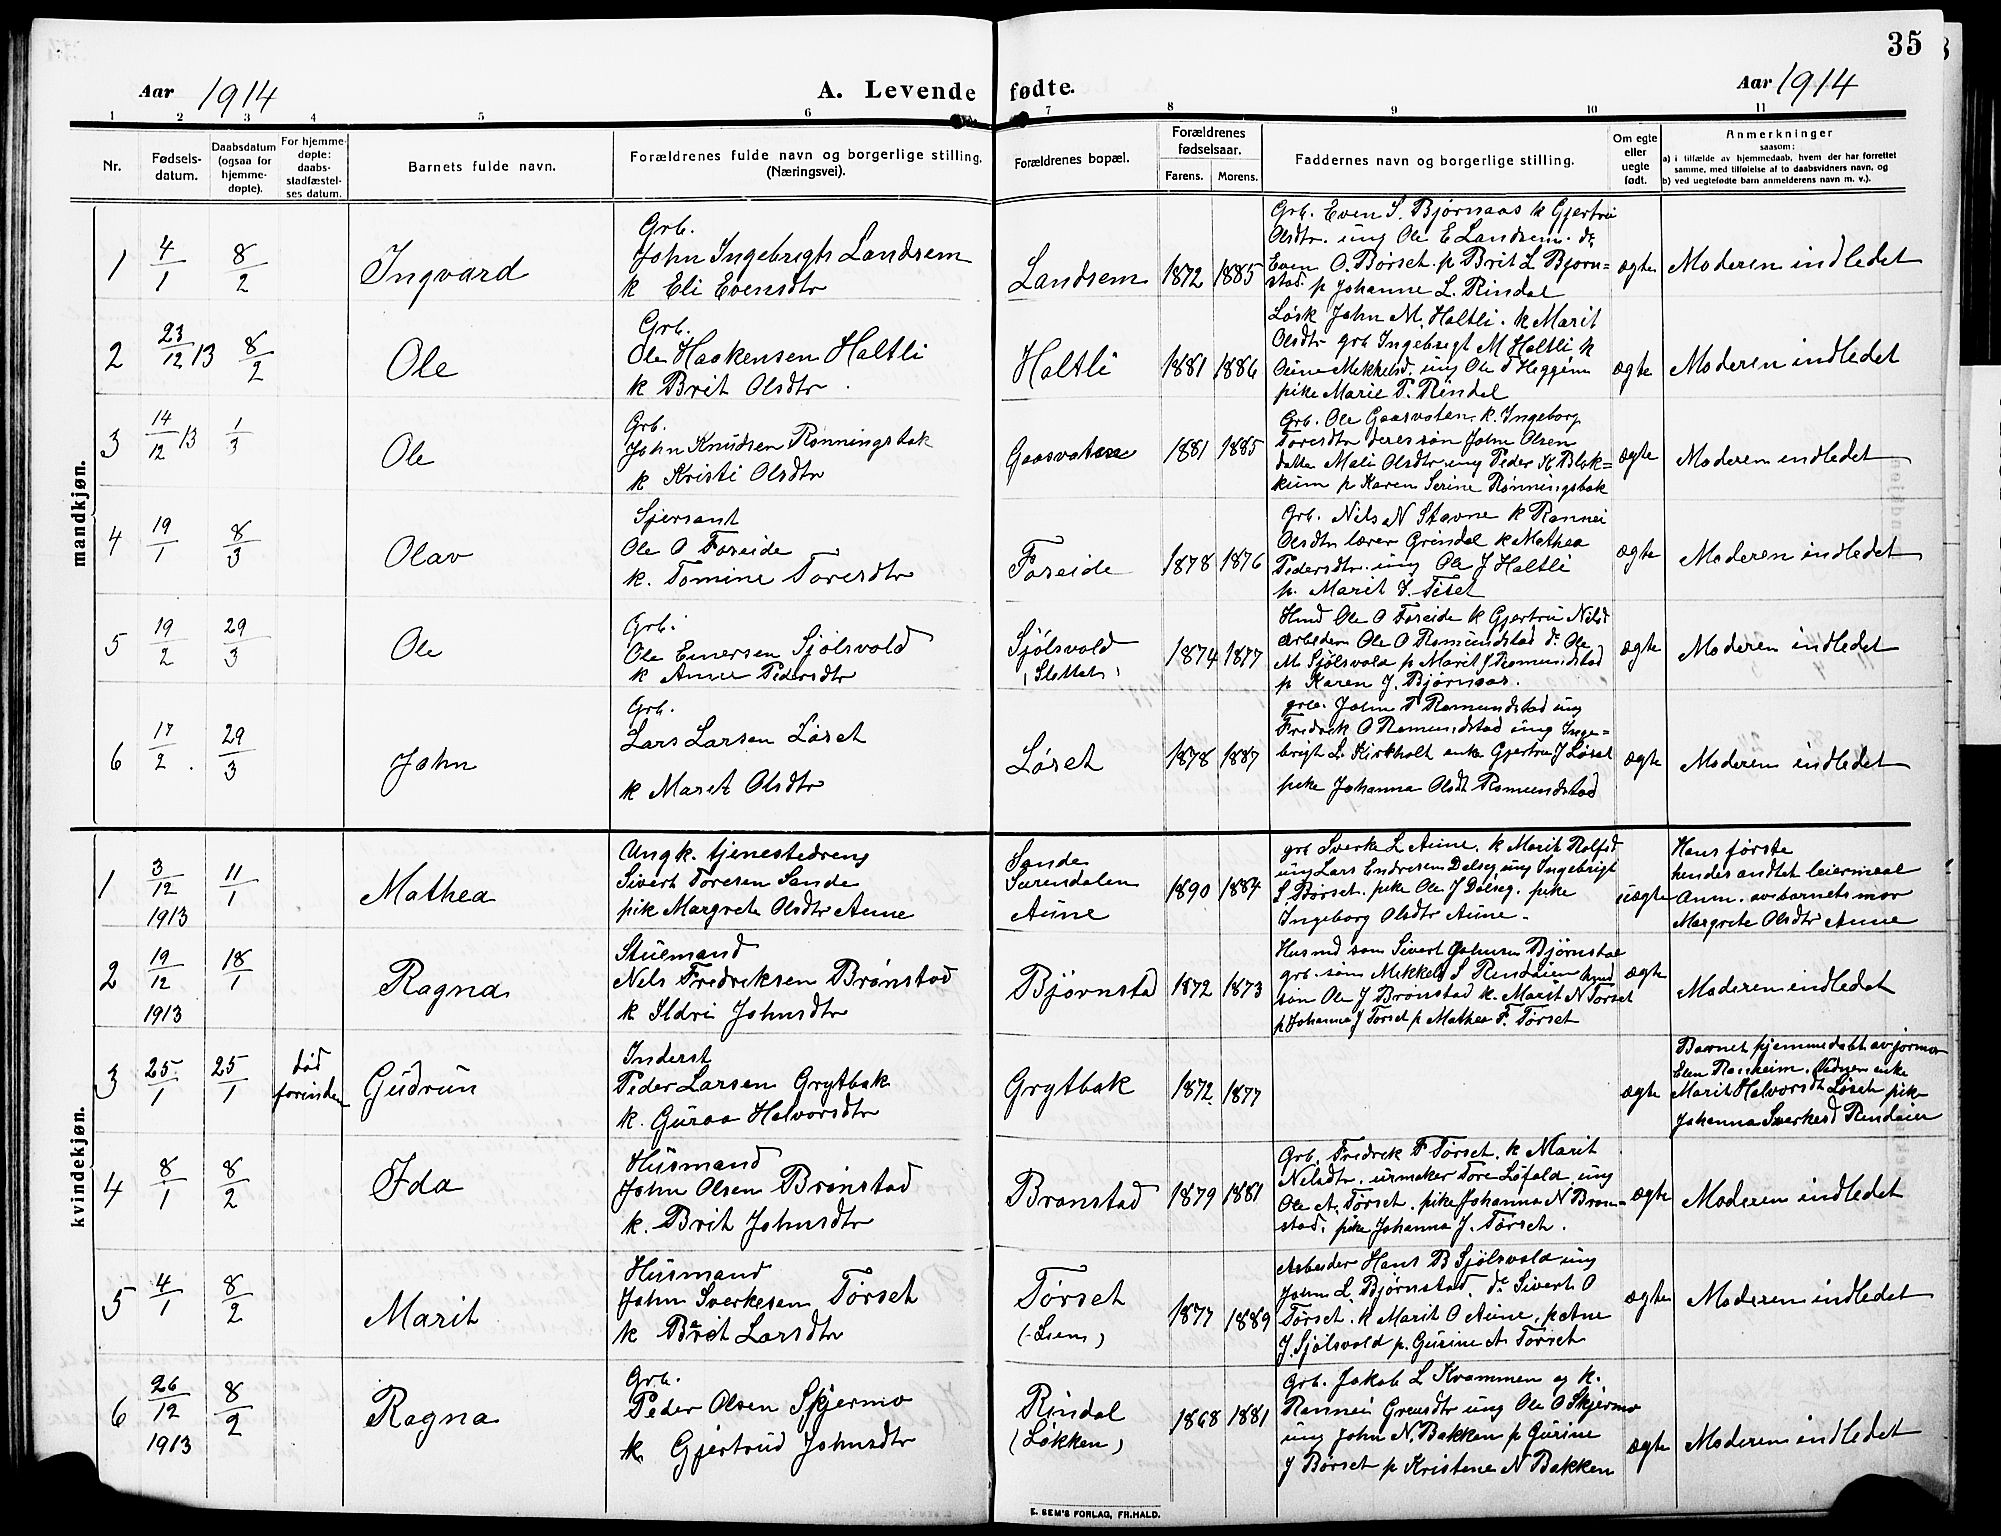 35
Aar 1914
A. Levende fødte.
Aar 1914
1 2 3 4 5 6 7 8 9 10 11
Nr.
Fødsels-
datum.
Daabsdatum
(ogsaa for
hjemme-
døpte).
For hjemme-
døpte:
daabs-
stadfæstel-
ses datum.
Barnets fulde navn.
Forældrenes fulde navn og borgerlige stilling.
(Næringsvei).
Forældrenes bopæl.
Forældrenes
fødselsaar.
Farens. Morens.
Faddernes navn og borgerlige stilling.
Om egte
eller
uegte
født.
Anmerkninger
saasom:
a) i tilfælde av hjemmedaab, hvem der har forrettet
samme, med tilføielse af to daabsvidners navn, og
b) ved uegtefødte barn anmelderens navn m. v.).
mandkjøn.
1
4/1
8/2
Ingvard
Grb.
John Ingebrigts Landsem
k Eli Evensdtr
Landsem
1872 1885
Grb. Even S. Bjørnaas k Gjertru
Olsdtr. ung Ole E Landsem. do
Even O. Børset. p Brit L Bjørn=
stad. p Johanne L. Rindal
ægte
Moderen indledet
2
23/12 13
8/2
Ole
Grb.
Ole Haakensen Holtli
k Brit Olsdtr
Holtli
1881 1886
Løsk John M. Holtli. k Marit
Olsdtr grb Ingebrigt M Holtli k
Mekkelsd. ung Ole Heggem
pike Marie P. Rindal
ægte
Moderen indledet
3
14/12 13
1/3
Ole
Grb.
John Knudsen Rønningsbak
k Kristi Olsdtr
Gaasvatn
1881 1885
Grb. Ole Gaasvaten. k. Ingeborg
Toresdtr deres søn John Olsen
datter Mali Olsdtr ung Peder K Blek=
kum p Karen Serine Rønningsbak
ægte
Moderen indledet
4
19/1
8/3
Olav
Sjersant
Ole O Foseide
k. Tomine Toresdtr
Foseide
1878 1876
Grb. Nils N Stavne k Rannei
Olsdtr lærer Grindal k Mathea
Pedersdtr. ung Ole J Holtli
p. Marit J. Tiset
ægte
Moderen indledet
5
19/2
29/3
Ole
Grb.
Ole Einersen Sjølsvold
k Anne Pedersdtr
Sjølsvold
(Slettet)
1874 1877
Hmd Ole O Foseide k Gjertru Nilsd
arbeder Ole O Romundstad do Ole
M Sjølsvold p Marit J Romundstad
p Karen J. Bjørnaas.
ægte
Moderen indledet
6
17/2
29/3
John
Grb.
Lars Larsen Løset
k Maret Olsdtr
Løset
1878 1887
grb. John T Romundstad ung
Fredrek O Romundstad ung Inge-
brigt L Kirkholt enke Gjertru J Løset
pike Johanna Olsdt Romundstad
ægte
Moderen indledet
kvindekjøn.
1
3/12
1913
11/1
Mathea
Ungk. tjenestedreng
Sivert Toresen Sande
pik Margrete Olsdtr Aune
Sande
Surendalen
Aune
1890 1884
grb Sverke L Aune. k Marit Rolfsd
ung Lars Endresen Dalseg ung Ingebrigt
S. Børset. pike Ole J Dalseg. pike
Ingeborg Olsdtr Aune.
uægte
Hans første
hendes andtet leiermaal
Anm. av barnets mor
Margrete Olsdtr Aune
2
19/12
1913
18/1
Ragna
Stuemand
Nels Fredreksen Brønstad
k Ildri Johnsdtr
Bjørnstad
1872 1873
Husmd søn Sivert Johnsen Bjørnstad
grb. søn Mekkel S Rendalen hmd
søn Ole J Brønstad k. Marit N Tørset
p Johanna J Tørset p Mathea F. Tørset
ægte
Moderen indledet
3
25/1
25/1
død
forinden
Gudrun
Inderst
Peder Larsen Grytbak
k. Guroa Halvorsdtr
Grytbak
1872. 1877
ægte
Barnet hjemmedøbt av jormor
Elen Ranheim. Vidner enke
Marit Halvorsdt Løset pike
Johanna Sverkesd Rendalen
4
8/1
8/2
Ida
Husmand
John Olsen Brønstad
k. Brit Johnsdtr
Brønstad
1879 1881
Grb. Fredrek F Tørset. k Marit
Nilsdtr. urmaker Tore Løfald ung
Ole A. Tørset. pike Johanna N Brøn-
stad. pike Johanna J. Tørset.
ægte
Moderen indledet
5
4/1
8/2
Marit
Husmand
John Sverkesen Tørset
k Brit Larsdtr
Tørset
(Lien)
1877 1889
Arbeider Hans B Sjølsvold ung
John L. Bjørnstad. do Sivert O
Tørset. k Marit O Aune. p Ane
J. Sjølsvold p. Gurine A Tørset
ægte
Moderen indledet
6
26/12
1913
8/2
Ragna
Grb.
Peder Olsen Skjermo
k. Gjertrud Johnsdtr
Rindal
(Løkken)
1868 1881
Grb. Jakob L Kvammen og k.
Rannei ung Ole O Skjermo
ung John N. Bakken p Gurine
J Børset p Kristene N Bakken
ægte
Moderen indledet
E. SEM'S FORLAG, FR.HALD.